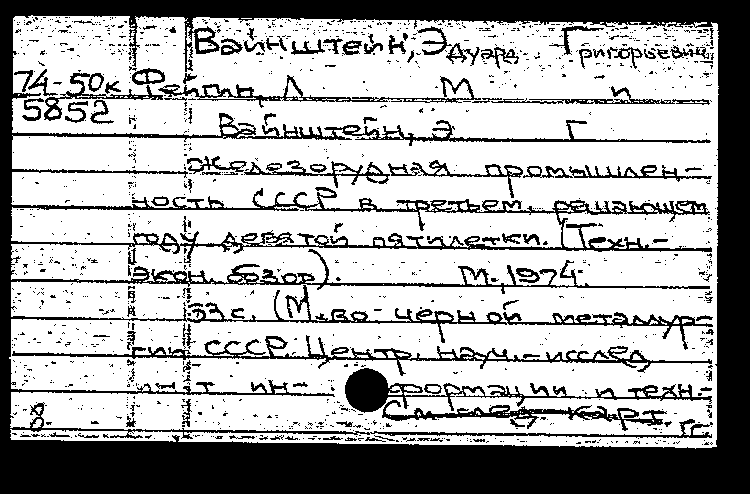 Вайнштейн, Эдуард Григорьевич
74-50к Фейгин, Л М и
5852
Вайнштейн, Э Г
Железорудная промышлен-
ность СССР в третьем, решающем
году девятой пятилетки. (Техн.-
экон. обзор). М., 1974.
53 с. (М-во черной металлур-
гии СССР. Центр. науч.-исслед
ин-т ин-формации и техн.-
8 См. след. карт.